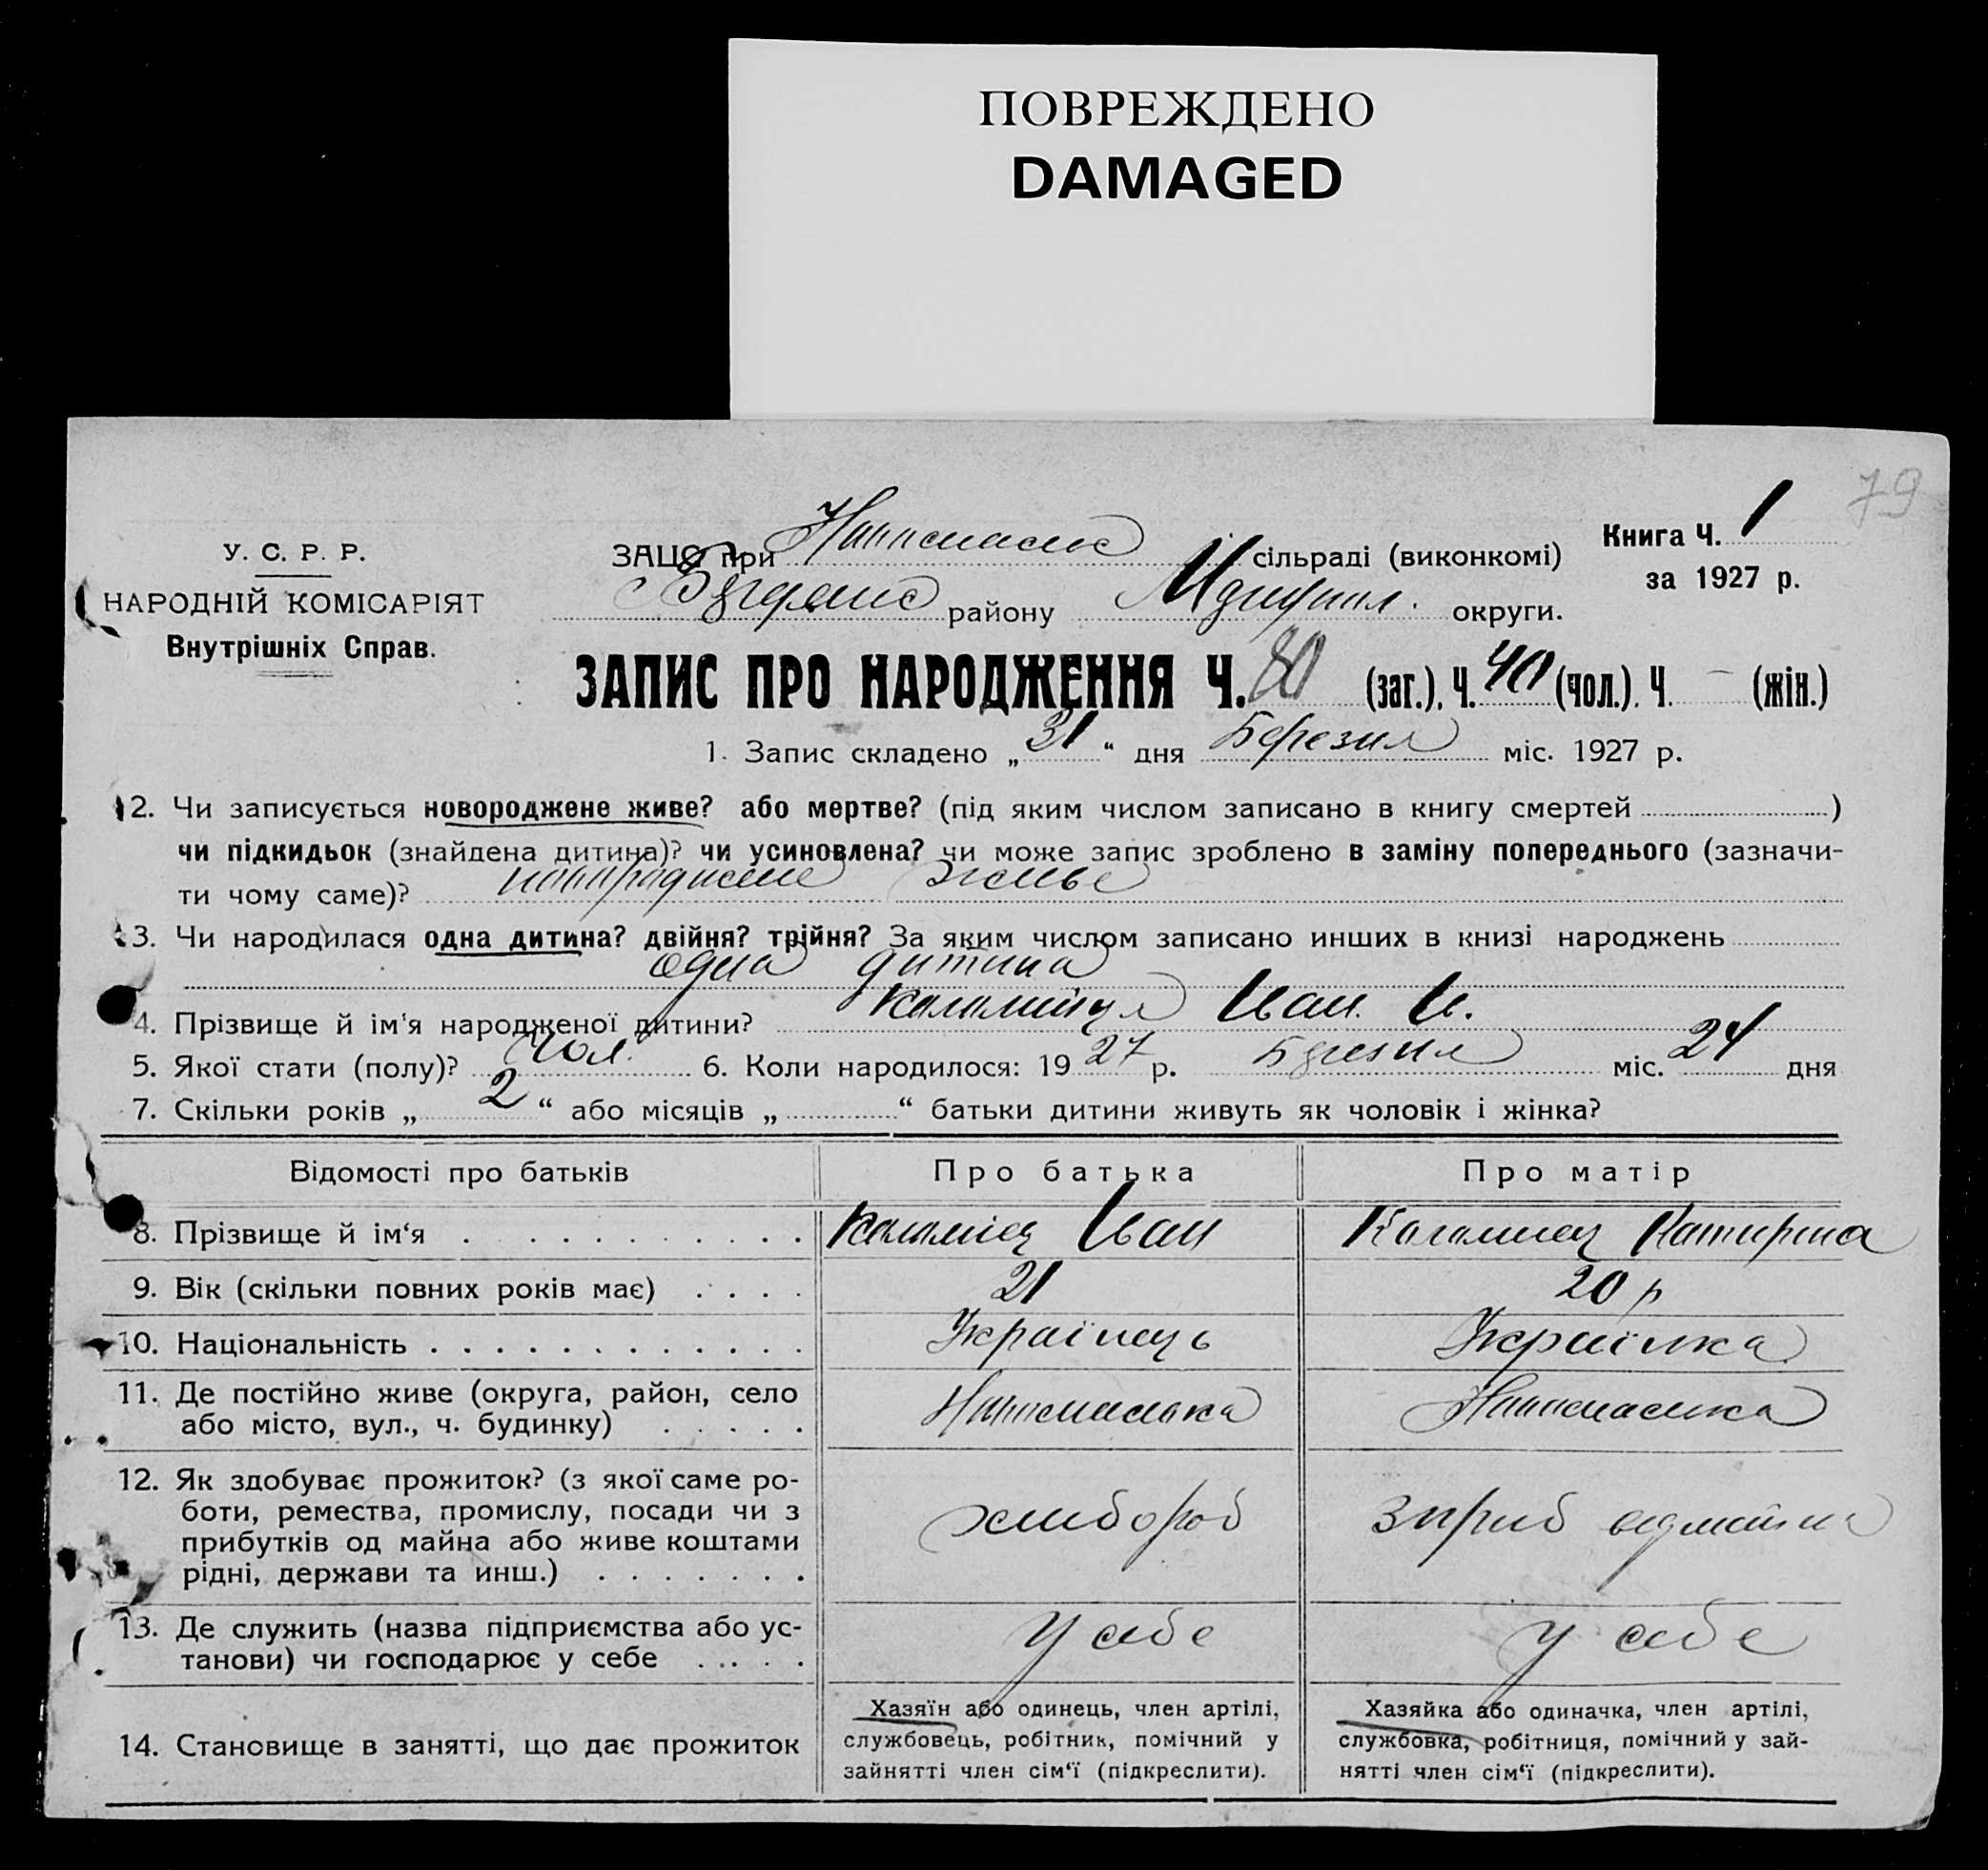 ПОВРЕЖДЕНО
DAMAGED
79
У. С. Р. Р.
НАРОДНІЙ КОМІСАРІЯТ
Внутрішніх Справ.
ЗАЦС при сільраді (виконкомі)
району округи.
Книга Ч. 1
за 1927 р.
ЗАПИС ПРО НАРОДЖЕННЯ Ч. 80 (заг.). Ч. 40 (чол.). Ч. – (жін.)
1. Запис складено „ 31 “ дня Березня міс. 1927 р.
2. Чи записується новороджене живе? або мертве? (під яким числом записано в книгу смертей )
чи підкидьок (знайдена дитина)? чи усиновлена? чи може запис зроблено в заміну попереднього (зазначи-
ти чому саме)? живе
3. Чи народилася одна дитина? двійня? трійня? За яким числом записано инших в книзі народжень
одна дитина
4. Прізвище й ім'я народженої дитини? Иван И.
5. Якої стати (полу)? Чол. 6. Коли народилося: 19 27 р. Березня міс. 24 дня
7. Скільки років „ 2 “ або місяців „ “ батьки дитини живуть як чоловік і жінка?
Відомості про батьків Про батька Про матір
8. Прізвище й ім‘я Коломиец Иван Коломиец Катирина
9. Вік (скільки повних років має) 21 20 р
10. Національність Українець Українка
11. Де постійно живе (округа, район, село
або місто, вул., ч. будинку)
12. Як здобуває прожиток? (з якої саме ро-
боти, ремества, промислу, посади чи з
прибутків од майна або живе коштами
рідні, держави та инш.) хлибороб
13. Де служить (назва підприємства або ус-
танови) чи господарює у себе У себе у себе
14. Становище в занятті, що дає прожиток
Хазяїн або одинець, член артілі,
службовець, робітник, помічний у
зайнятті член сім‘ї (підкреслити).
Хазяйка або одиначка, член артілі,
службовка, робітниця, помічний у зай-
нятті член сім‘ї (підкреслити).